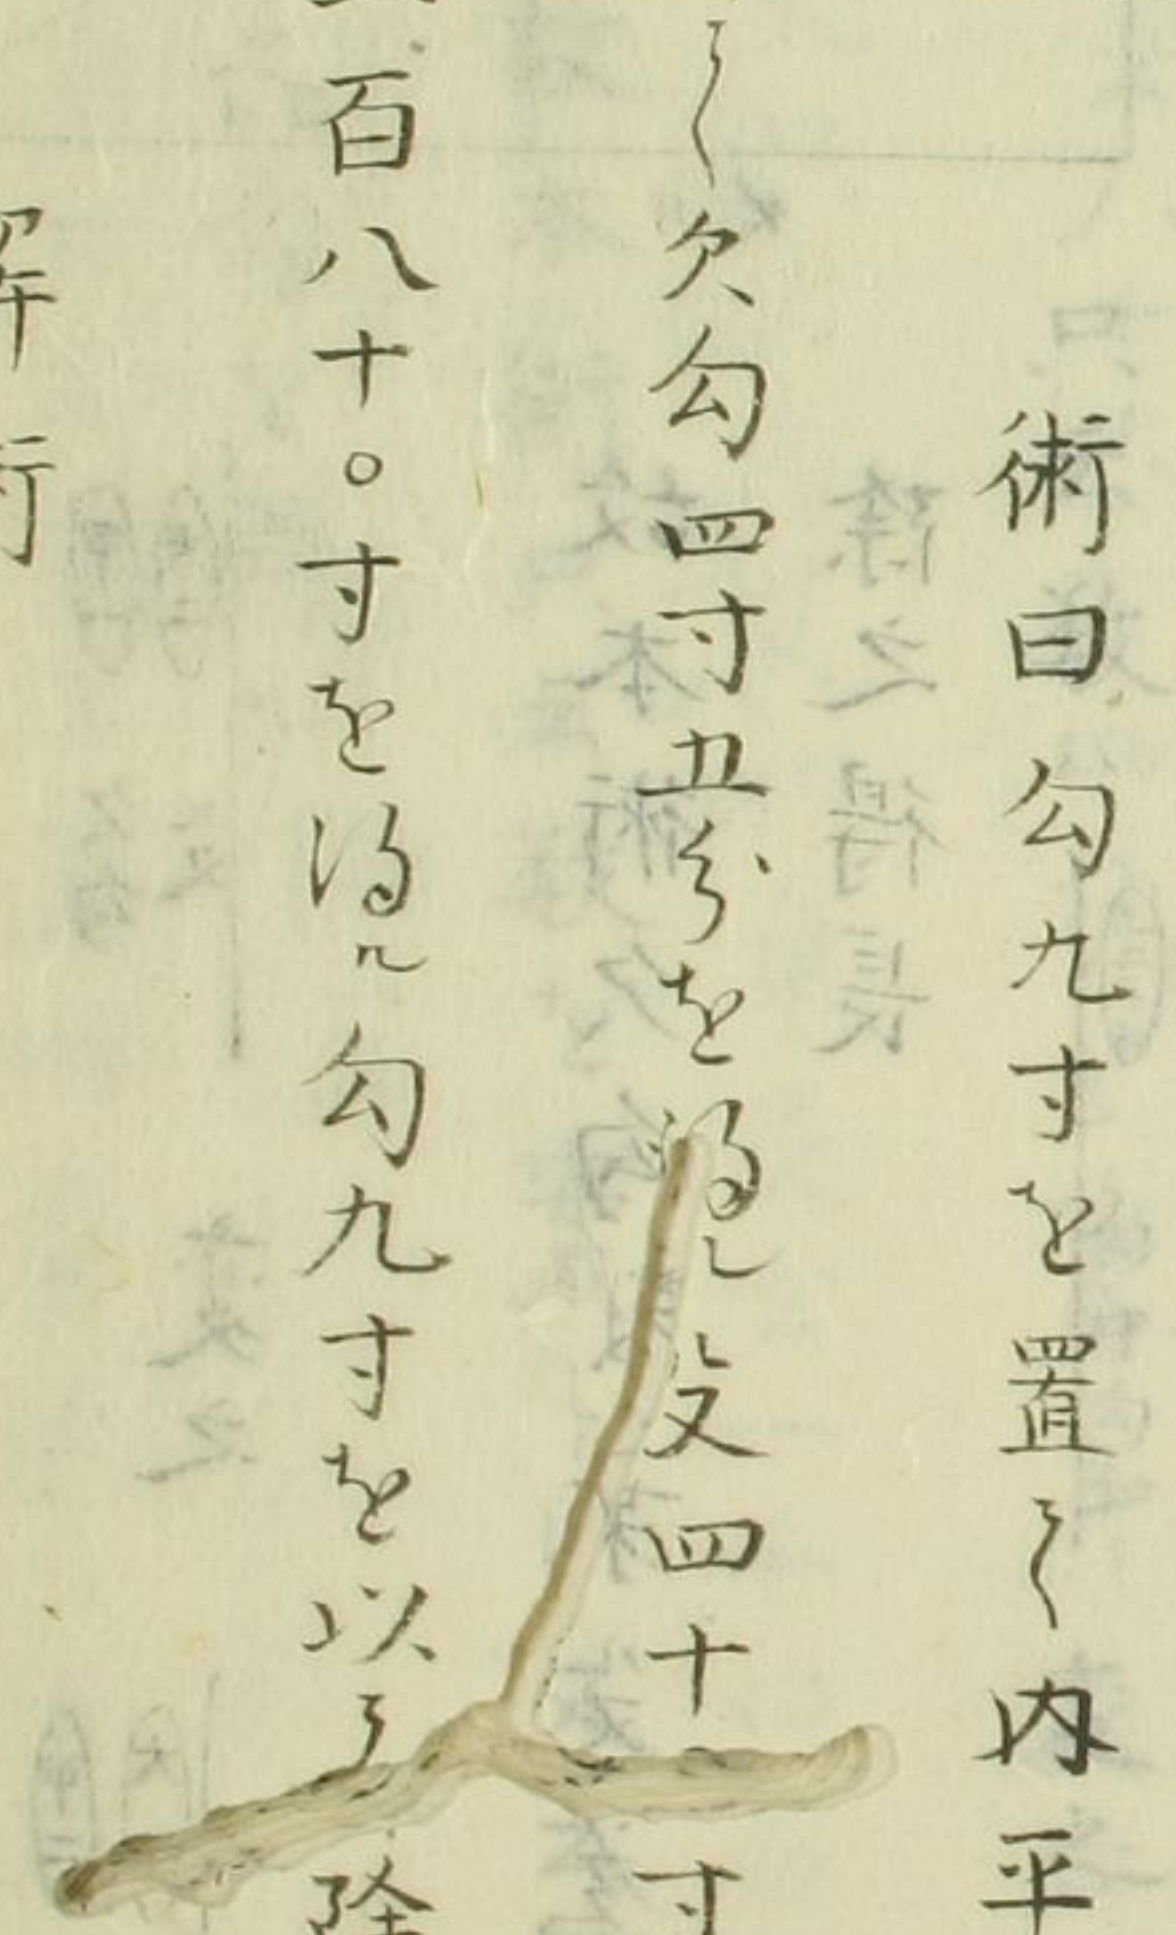 術曰勾九寸を置て内平
て欠勾四寸五分を得て文四十寸
百八十〇寸を得ル勾九寸を以て除
解術